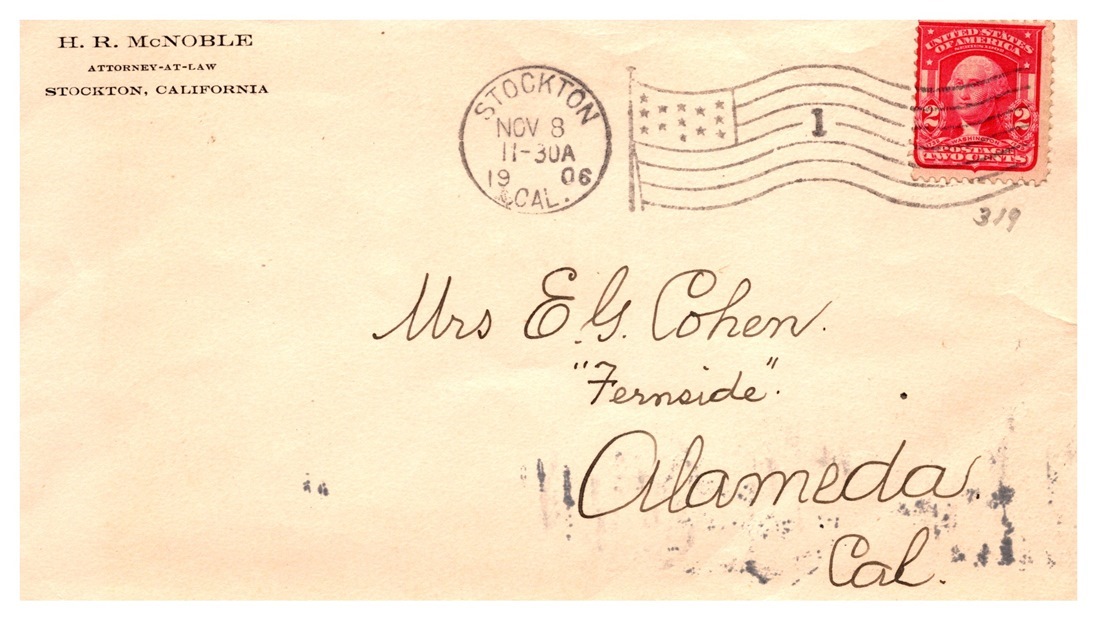 H. R. McNOBLE
ATTORNEY-AT-LAW
STOCKTON, CALIFORNIA
STOCKTON
NOV 8
11-30A
19 06
CAL.
1
UNITED STATES
OF AMERICA
SERIES 1902
2 2
WASHINGTON
POSTAGE
TWO CENTS
319
Mrs E. G. Cohen.
"Fernside".
Alameda.
Cal.